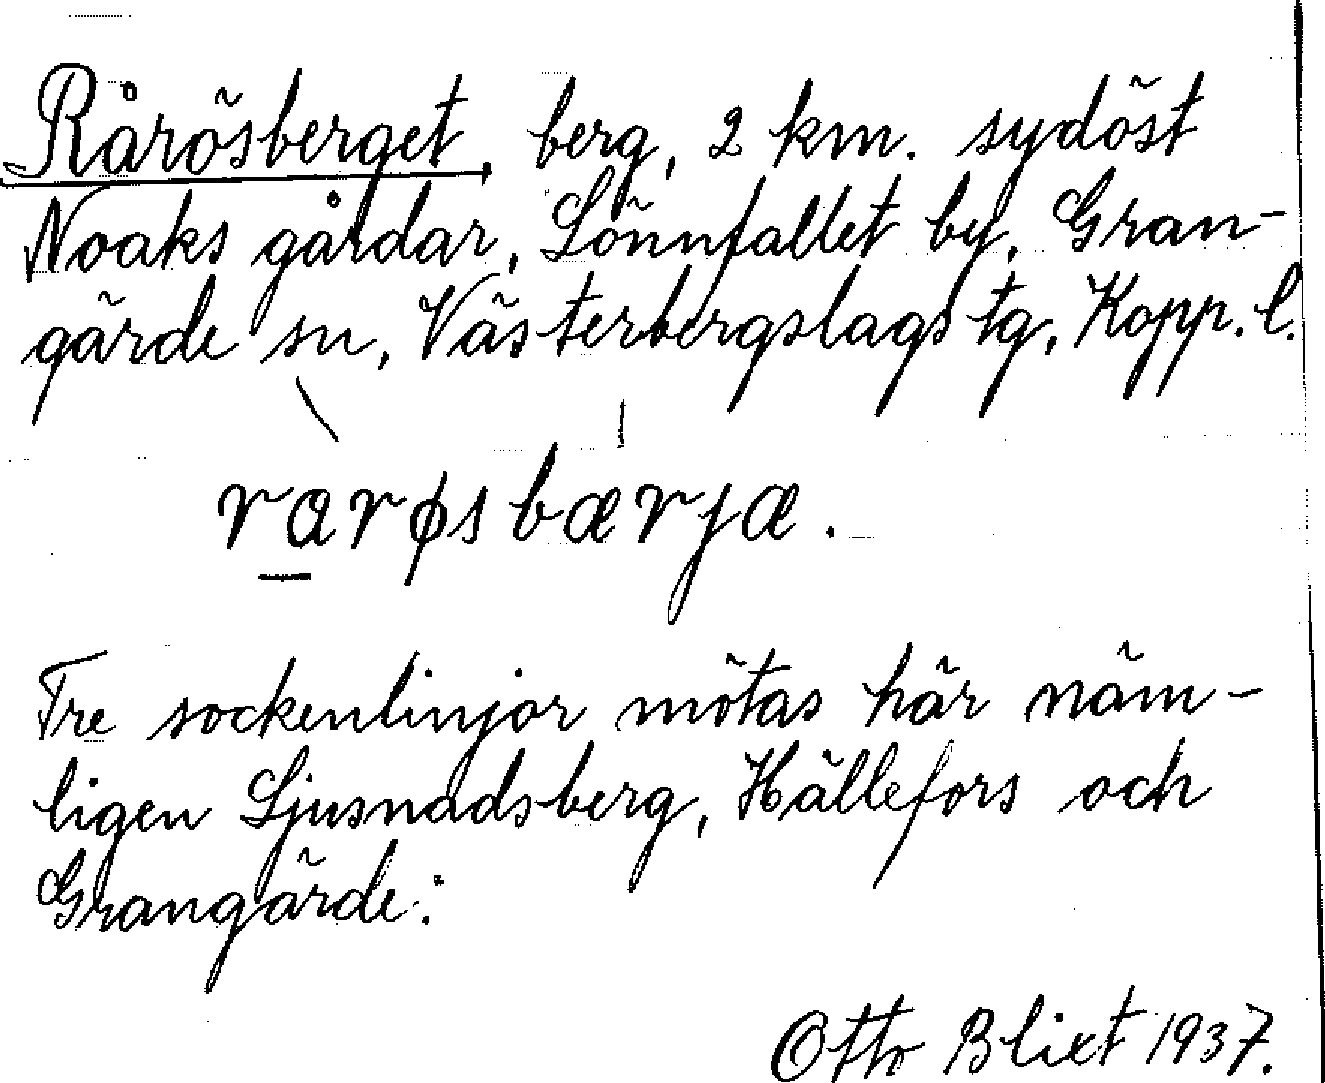 Rårösberget, berg, 2 km. sydöst
Noaks gårdar, Lönnfallet by, Gran-
gärde sn, Västerbergslags tg, Kopp. l.
rarøsbærjæ.
Tre sockenlinjor mötas här näm-
ligen Ljusnadsberg, Hällefors och
Grangärde.
Otto Blixt 1937.